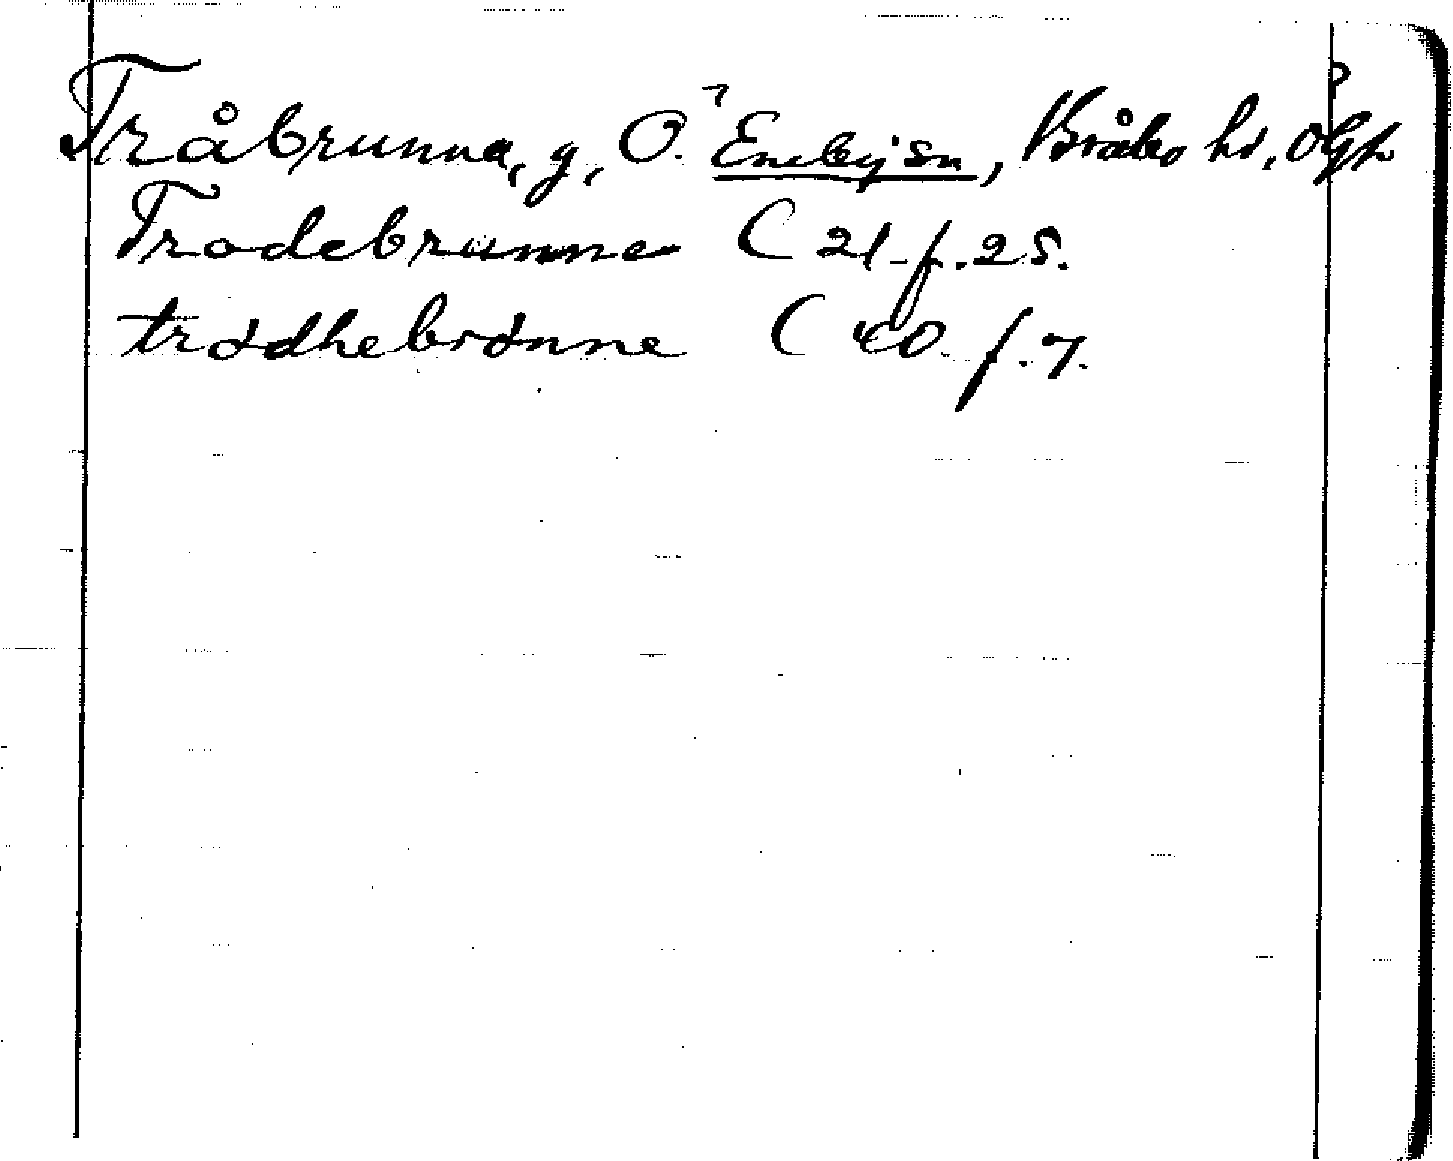 Tråbrunna, g, Ö. Eneby sn, Bråbo hd, Ögl
Trodebrunne C 21 f. 25.
trødhebrønne C 40 f. 7.